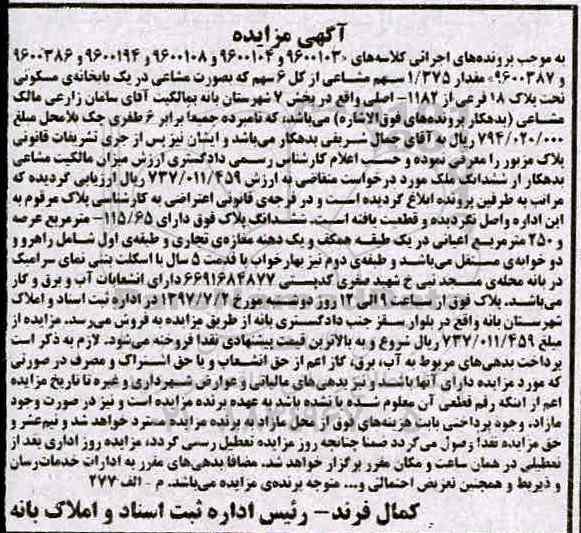 آگهی مزایده
به موجب پرونده‌های اجرائی کلاسه‌های «۹۶۰۰۱۰۳ و ۹۶۰۰۱۰۴ و ۹۶۰۰۱۰۸ و ۹۶۰۰۱۹۴ و ۹۶۰۰۳۸۶
و ۹۶۰۰۳۸۷» مقدار ۱/۳۷۵ سهم مشاعی از کل ۶ سهم که بصورت مشاعی در یک بابخانه‌ی مسکونی
تحت پلاک ۱۸ فرعی از ۱۱۸۲- اصلی واقع در بخش ۷ شهرستان بانه بمالکیت آقای سامان زارعی مالک
مشاعی (بدهکار پرونده‌های فوق‌الاشاره) می‌باشد، که نامبرده جمیعا برابر ۶ طغری چک بلامحل مبلغ
۷۹۴/۰۲۰/۰۰۰ ریال به آقای جمال شریفی بدهکار می‌باشد و ایشان نیز پس از جری تشریفات قانونی
پلاک مزبور را معرفی نموده و حسب اعلام کارشناس رسمی دادگستری ارزش میزان مالکیت مشاعی
بدهکار از ششدانگ ملک مورد درخواست متقاضی به ارزش ۷۳۷/۰۱۱/۴۵۹ ریال ارزیابی گردیده که
مراتب به طرفین پرونده ابلاغ گردیده است و در فرجه‌ی قانونی اعتراضی به کارشناسی پلاک مرقوم به
این اداره واصل نگردیده و قطعیت یافته است. ششدانگ پلاک فوق دارای ۱۱۵/۶۵- مترمربع عرصه
و ۲۵۰ مترمربع اعیانی در یک طبقه همکف و یک دهنه مغازه‌ی تجاری و طبقه‌ی اول شامل راهرو و
دو خوابه‌ی مستقل می‌باشند و طبقه‌ی دوم نیز بهارخواب با قدمت ۵ سال با اسکلت بتنی نمای سرامیک
در بانه محله‌ی مسجد نبی خ شهید صفری کدپستی ۶۶۹۱۶۸۴۸۷۷ دارای انشعابات آب و برق و گاز
می‌باشد. پلاک فوق از ساعت ۹ الی ۱۲ روز دوشنبه مورخ ۱۳۹۷/۷/۲ در اداره ثبت اسناد و املاک
شهرستان بانه واقع در بلوار سقز جنب دادگستری بانه از طریق مزایده به فروش می‌رسد. مزایده از
مبلغ ۷۳۷/۰۱۱/۴۵۹ ریال شروع و به بالاترین قیمت پیشنهادی نقدا فروخته می‌شود. لازم به ذکر است
پرداخت بدهی‌های مربوط به آب، برق، گاز اعم از حق انشعاب و یا حق اشتراک و مصرف در صورتی
که مورد مزایده دارای آنها باشند و نیز بدهی‌های مالیاتی و عوارض شهرداری و غیره تا تاریخ مزایده
اعم از اینکه رقم قطعی آن معلوم شده یا نشده باشد به عهده برنده مزایده است و نیز در صورت وجود
مازاد، وجوه پرداختی بابت هزینه‌های فوق از محل مازاد به برنده مزایده مسترد خواهد شد و نیم‌عشر و
حق مزایده نقدا وصول می‌گردد ضمنا چنانچه روز مزایده تعطیل رسمی گردد، مزایده روز اداری بعد از
تعطیلی در همان ساعت و مکان مقرر برگزار خواهد شد. مضافا بدهی‌های مقرر به ادارات خدمات‌رسان
و ذیربط و همچنین تعریض احتمالی و... متوجه برنده‌ی مزایده می‌باشد. م - الف ۲۷۷
کمال فرند- رئیس اداره ثبت اسناد و املاک بانه